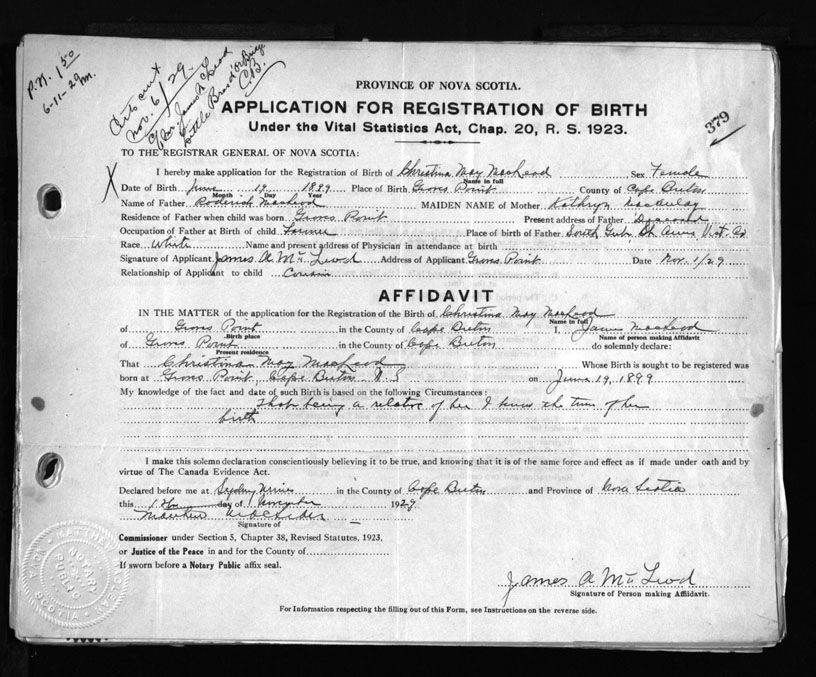 P.N. 150
6-11-29 M.
Nov. 6/29
C/o Mr. James A McLeod
Little Bras d'or Bridge
C.B.
PROVINCE OF NOVA SCOTIA.
APPLICATION FOR REGISTRATION OF BIRTH
Under the Vital Statistics Act, Chap. 20, R. S. 1923.
379
TO THE REGISTRAR GENERAL OF NOVA SCOTIA:
X I hereby make application for the Registration of Birth of Christina May MacLeod Sex Female
Name in full
Date of Birth June 19 1899 Place of Birth Groves Point County of Cape Breton
Month Day Year
Name of Father Roderick MacLeod MAIDEN NAME of Mother Kathryn MacAulay
Residence of Father when child was born Groves Point Present address of Father Deceased
Occupation of Father at Birth of child Farmer Place of birth of Father South Gut, St. Anns, Vict. Co
Race White Name and present address of Physician in attendance at birth
Signature of Applicant James A McLeod Address of Applicant Groves Point Date Nov. 1/29
Relationship of Applicant to child Cousin
AFFIDAVIT
IN THE MATTER of the application for the Registration of the Birth of Christina May MacLeod
Name in full
of Groves Point in the County of Cape Breton I, James MacLeod
Birth place Name of person making Affidavit
of Groves Point in the County of Cape Breton do solemnly declare:
Present residence
That Christina May MacLeod Whose Birth is sought to be registered was
born at Groves Point, Cape Breton N.S on June 19, 1899
My knowledge of the fact and date of such Birth is based on the following Circumstances:
That being a relative of her I know the time of her
birth
I make this solemn declaration conscientiously believing it to be true, and knowing that it is of the same force and effect as if made under oath and by
virtue of The Canada Evidence Act.
Declared before me at Sydney Mines in the County of Cape Breton and Province of Nova Scotia
this 1 day of November 1929
Matthew
Signature of
Commissioner under Section 5, Chapter 38, Revised Statutes, 1923.
or Justice of the Peace in and for the County of
If sworn before a Notary Public affix seal.
NOTARY
PUBLIC
James A McLeod
Signature of Person making Affidavit.
For Information respecting the filling out of this Form, see Instructions on the reverse side.